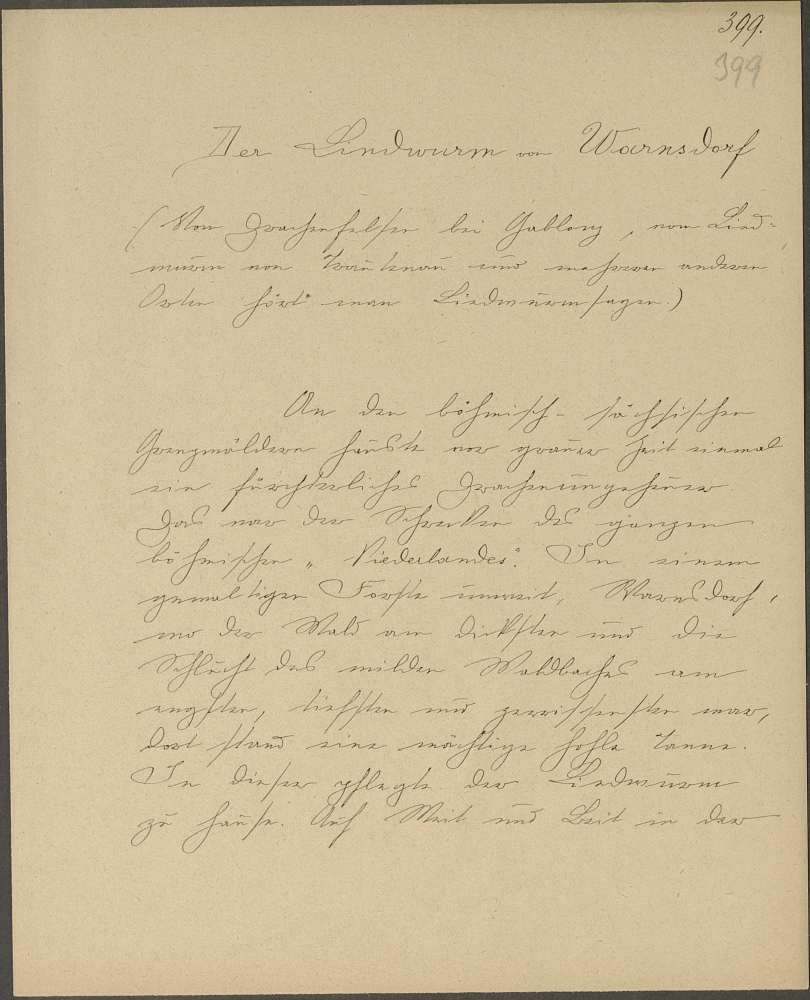 399.
399
Der Lindwurm von Warnsdorf
(Von Drachenfelsen bei Gablonz, vom Lind-
wurm von Trautenau und mehreren anderen
Orten hört man Lindwurmsagen.)
An den böhmisch-sächsischen
Grenzwäldern hauste vor grauer Zeit einmal
ein fürchterliches Drachenungeheuer
Das war der Schrecken des ganzen
böhmischen „Niederlandes". In einem
gewaltigen Forste unweit, Warnsdorf,
wo der Wald am dicksten und die
Schlucht des wilden Waldbaches am
engsten, tiefsten und zerrissensten war,
dort stand eine mächtige hohle Tanne.
In dieser pflegte der Lindwurm
zu hause. Auf Weit und Breit in der